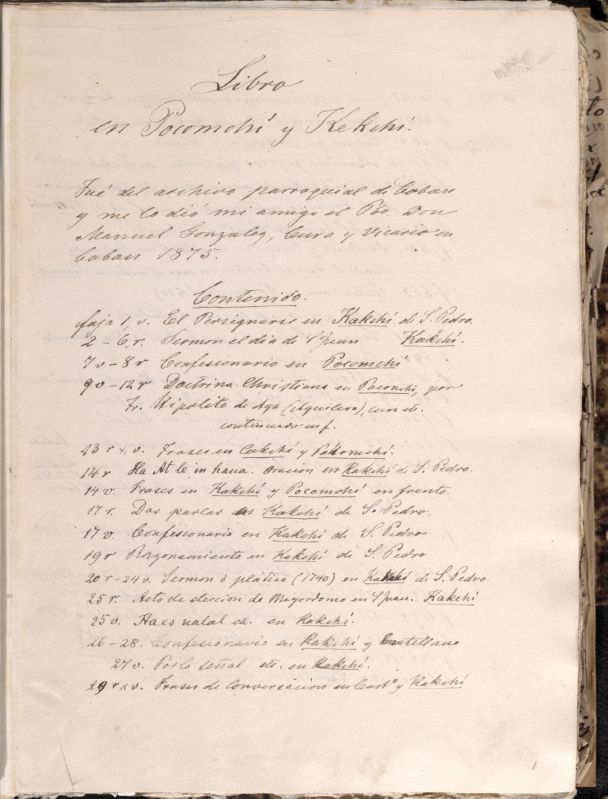 Libro
en Pocomchí y Kekchí.
Fué del archivo parroquial de Coban
y me lo dió mi amigo el Pbo. Don
Manuel Gonzalez, Cura y Vicario en
Coban 1875.
Contenido.
foja 1, v. El Persignarse en Kakchí de S. Pedro.
2 - 6, r. Sermon el dia de S Juan Kakchí.
7 v - 8 r Confesionario en Pocomchí
9 v - 12 r Doctrina Christiana en Poconchi, por
Fr. Hipolito de (Aguilera), cura de.
continuado en f.
13 r x v. Frases en Cakchí y Pokomchí.
14 r Ha At le in haua. Oracion en Kakchí de S. Pedro.
14 v. Frases en Kakchí y Pocomchí en frente.
17 r. Dos parles en Kakchí de S. Pedro.
17 v. Confesionario en Kakchí de S. Pedro
19 r Razonamiento en Kakchí de S. Pedro
20 r - 24 v. Sermon ó plática (1740) en Kakchí de S. Pedro.
25 r. Acto de eleccion de Mayordomo en S Juan. Kakchí
25 v. Haes ualal etc. en Kakchí.
26 - 28. Confesionario en Kakchí y Castellano
27 v. Por la señal etc. en Kakchí.
29 r x v. Frases de Conversacion en Casto y Kakchí
1